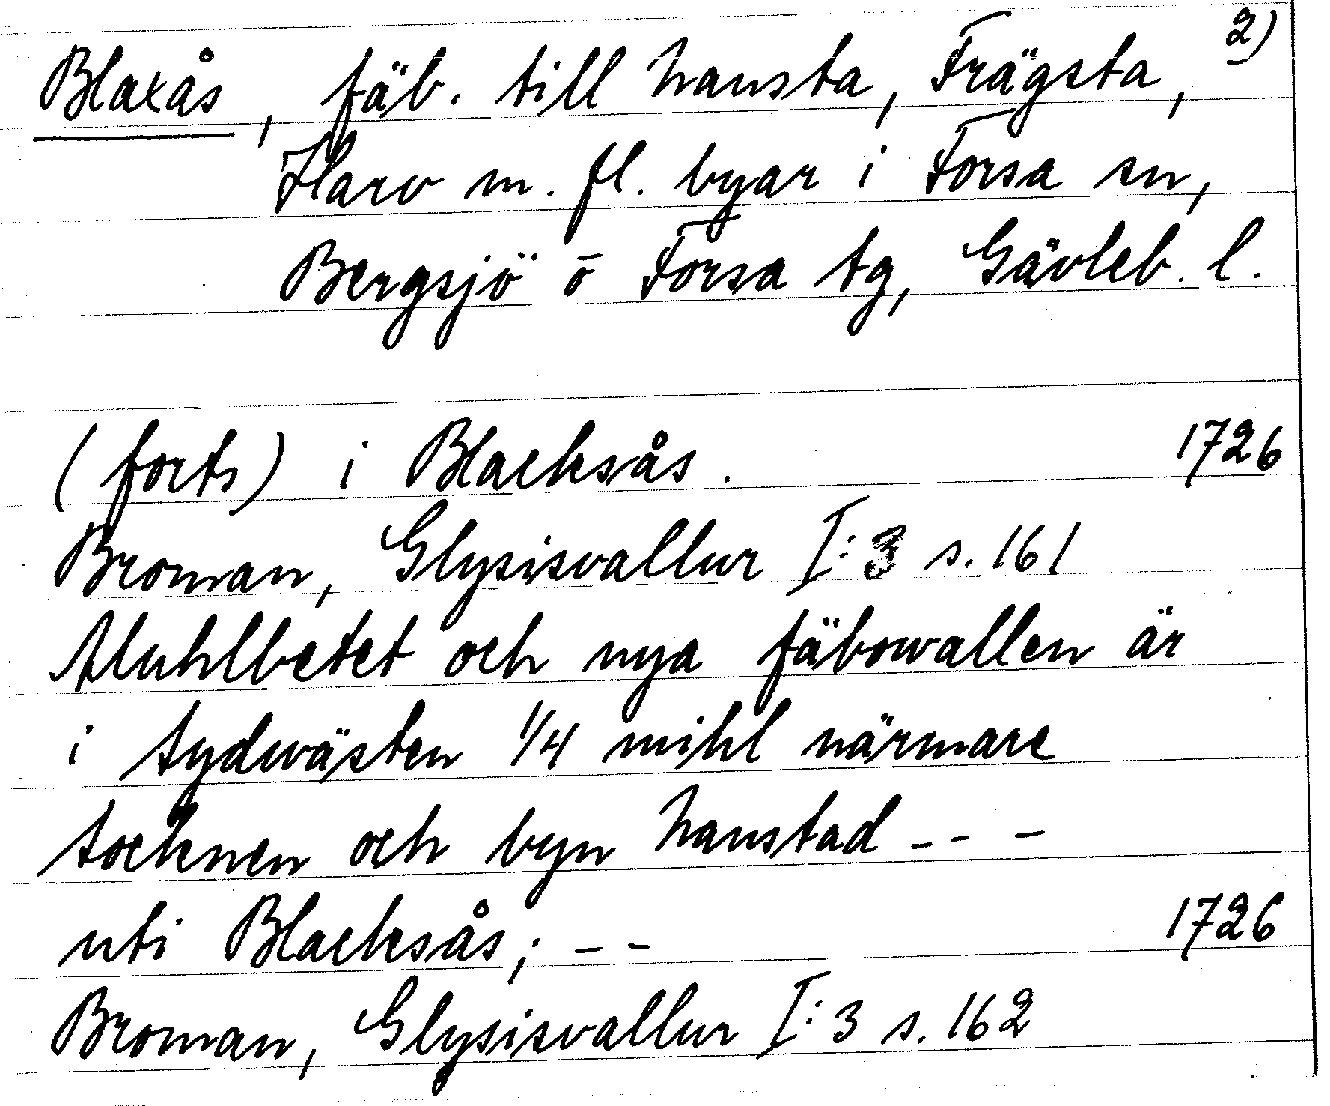 2)
Blaxås, fäb. till Hamsta, Frägsta,
Flarv m. fl. byar i Forsa sn,
Bergsjö o Forsa tg, Gävleb. l.
(forts) i Blacksås. 1726
Broman, Glysisvallur I:3 s. 161
Muhlbetet och nya fäbowallen är
i sydwästen 1/4 mihl närmare
socknen och byn Hamstad - - -
uti Blacksås; - - 1726
Broman, Glysisvallur I:3 s. 162